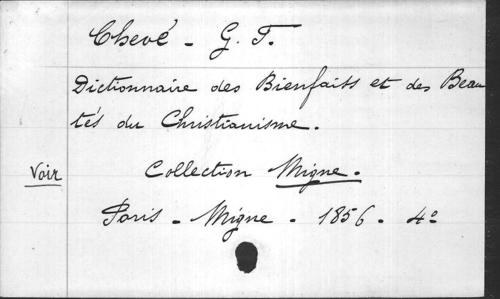 Chevé - G. T.
Dictionnaire des Bienfaits et des Beau
tés du Christianisme.
Voir Collection Migne.
Paris - Migne - 1856 - 4º